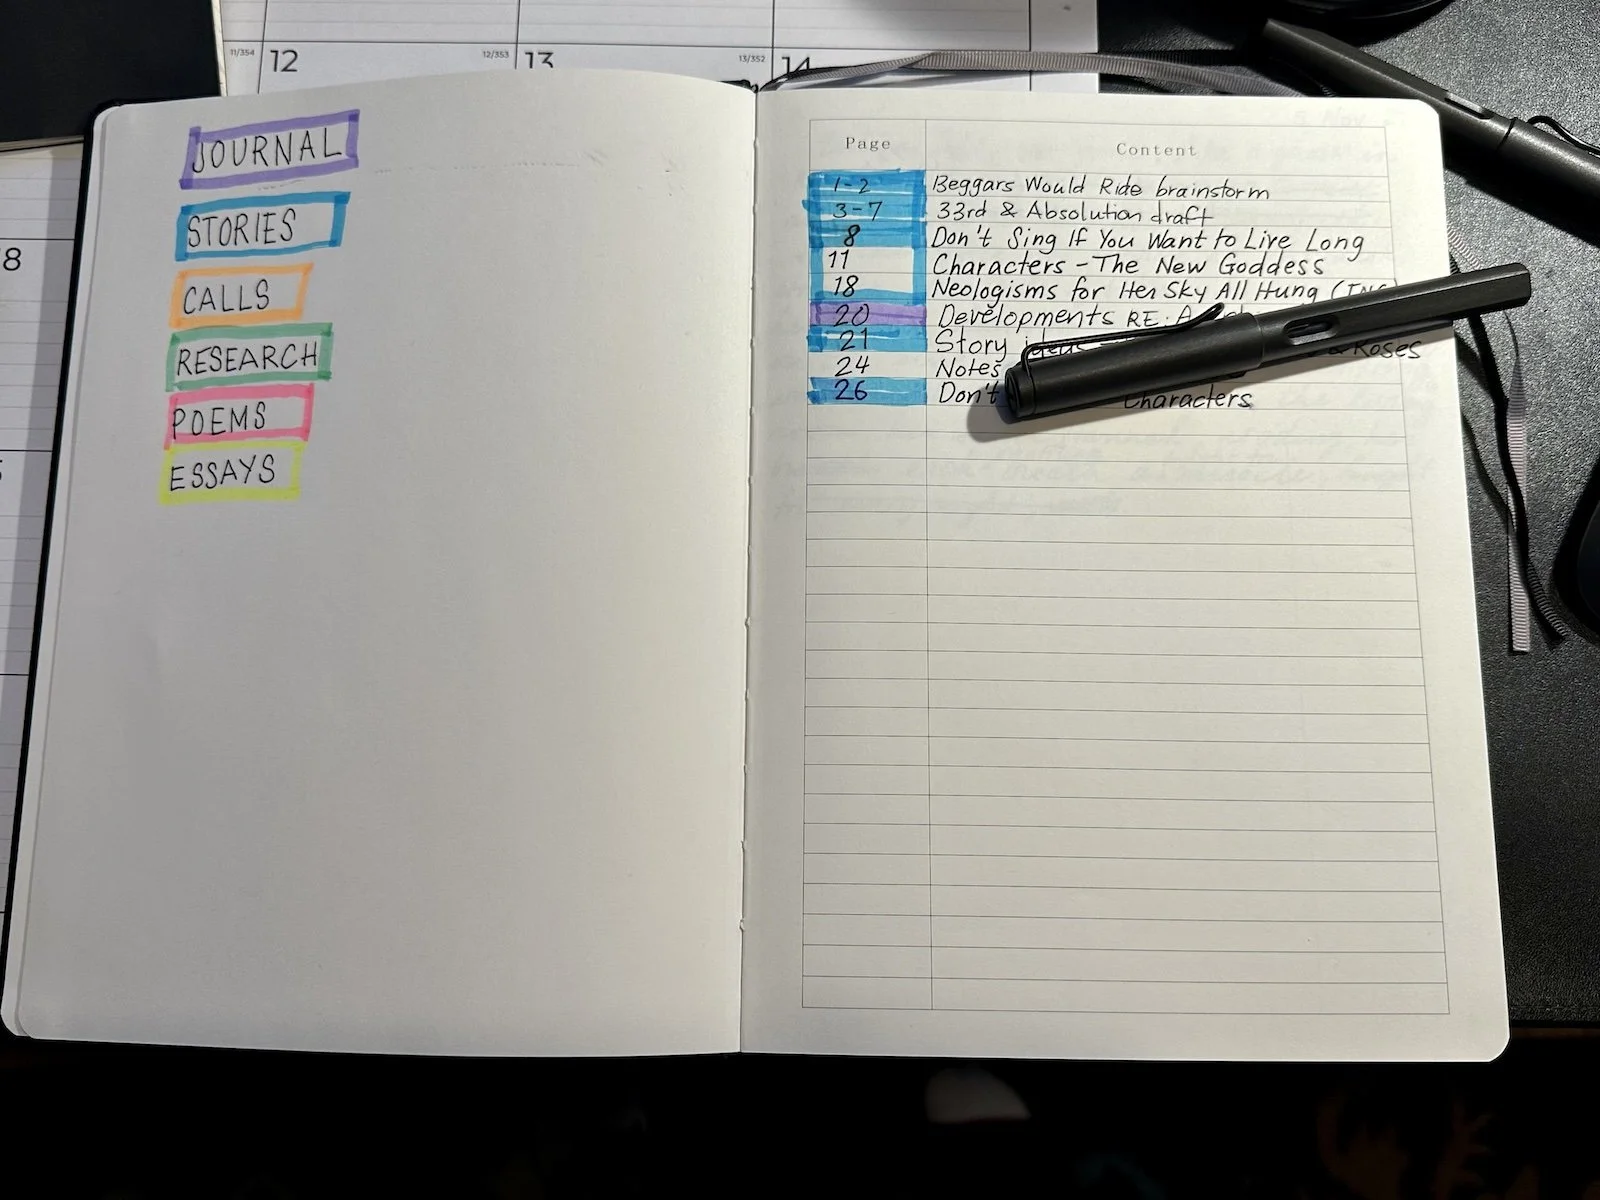 11/354
12
12/353
13
13/352
14
18
JOURNAL
STORIES
CALLS
RESEARCH
POEMS
ESSAYS
Page Content
1-2 Beggars Would Ride brainstorm
3-7 33rd & Absolution draft
8 Don't Sing If You Want to Live Long
11 Characters - The New Goddess
18 Neologisms for Her Sky All Hung
20 Developments RE:
21 Story ideas & Roses
24 Notes
26 Don't Characters